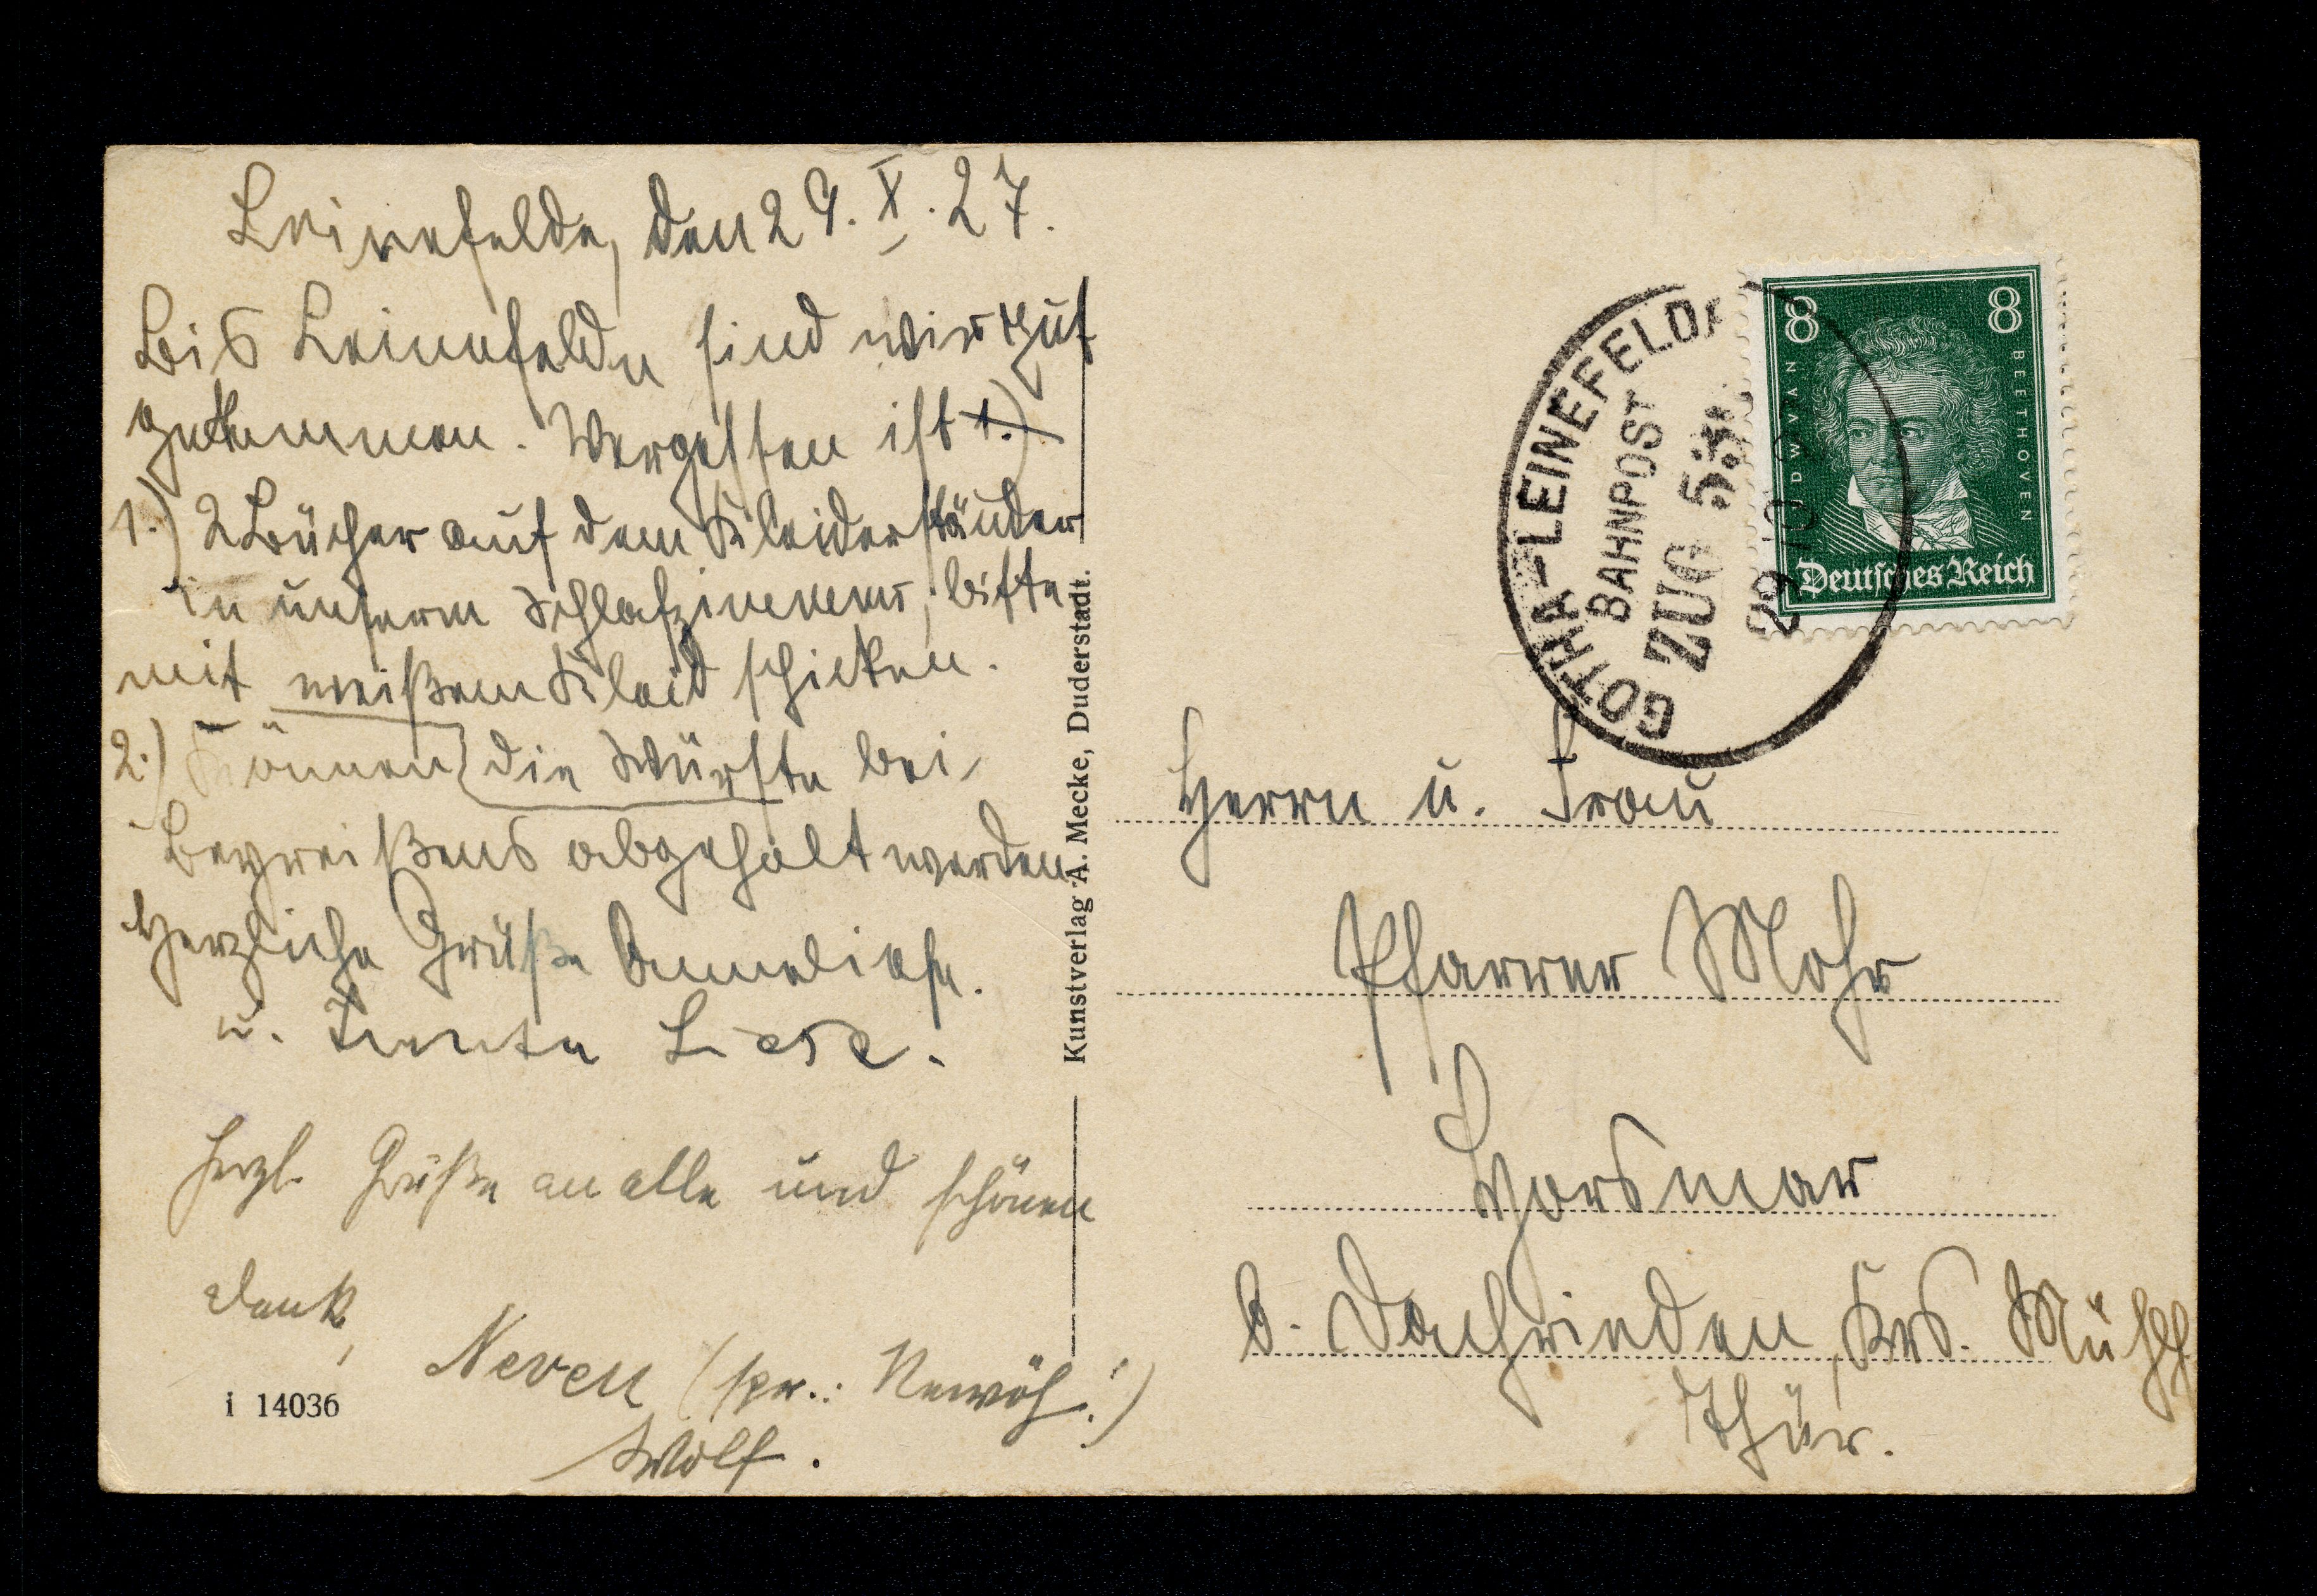 Leinefelde, den 29. X. 27.
Bis Leinefelde sind wir gut
gekommen. Vergessen ist 1.)
1.) 2 Bücher auf dem Kleiderständer
in unserm Schlafzimmer, bitte
mit weißem Kleid schicken.
2.) Können die Würste bei
abgeholt werden
Herzliche Grüße Anneliese.
u. Tante Liese.
Herzl. Grüße an alle und schönen
Dank,
Neven (spr.: Newöh!)
Wolf.
i 14036
Kunstverlag A. Mecke, Duderstadt.
GOTHA-LEINEFELDE
BAHNPOST
ZUG
29 10
8 8
LUDWIG VAN BEETHOVEN
Deutsches Reich
Herrn u. Frau
Pfarrer Mohr
Horsmar
b. Dachrieden, Krs. Mühlh.
Thür.